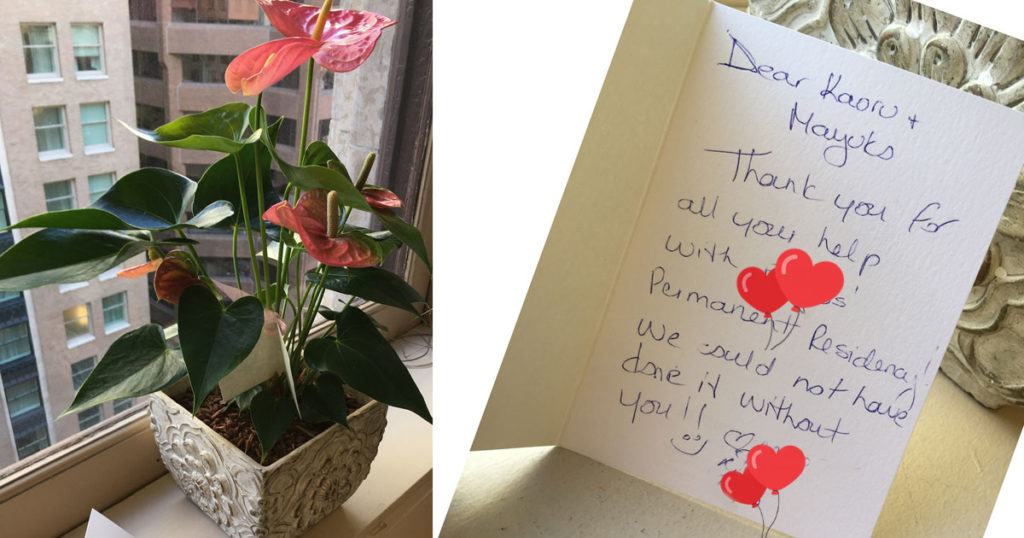 Dear Kaoru +
Mayuks
Thank you for
all your help
with
Permanent Residency!
We could not have
done it without
you!!